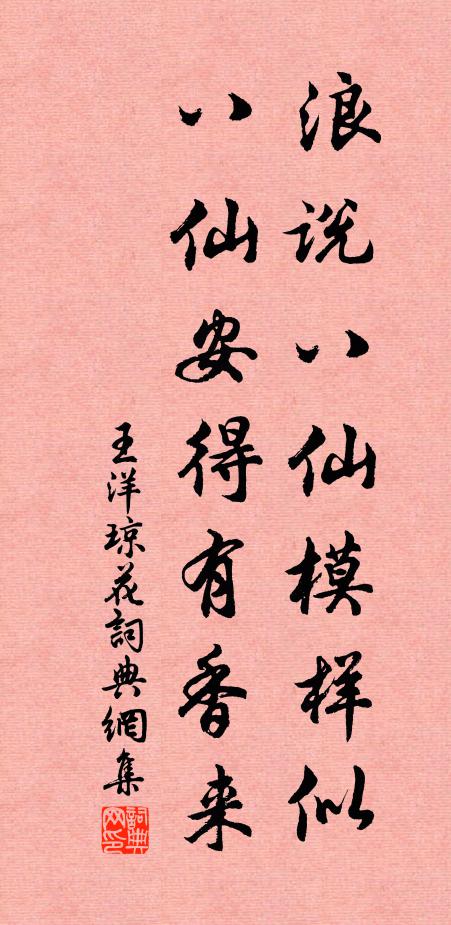 浪说八仙模样似
八仙安得有香来
王洋琼花詞典網集
詞典网印